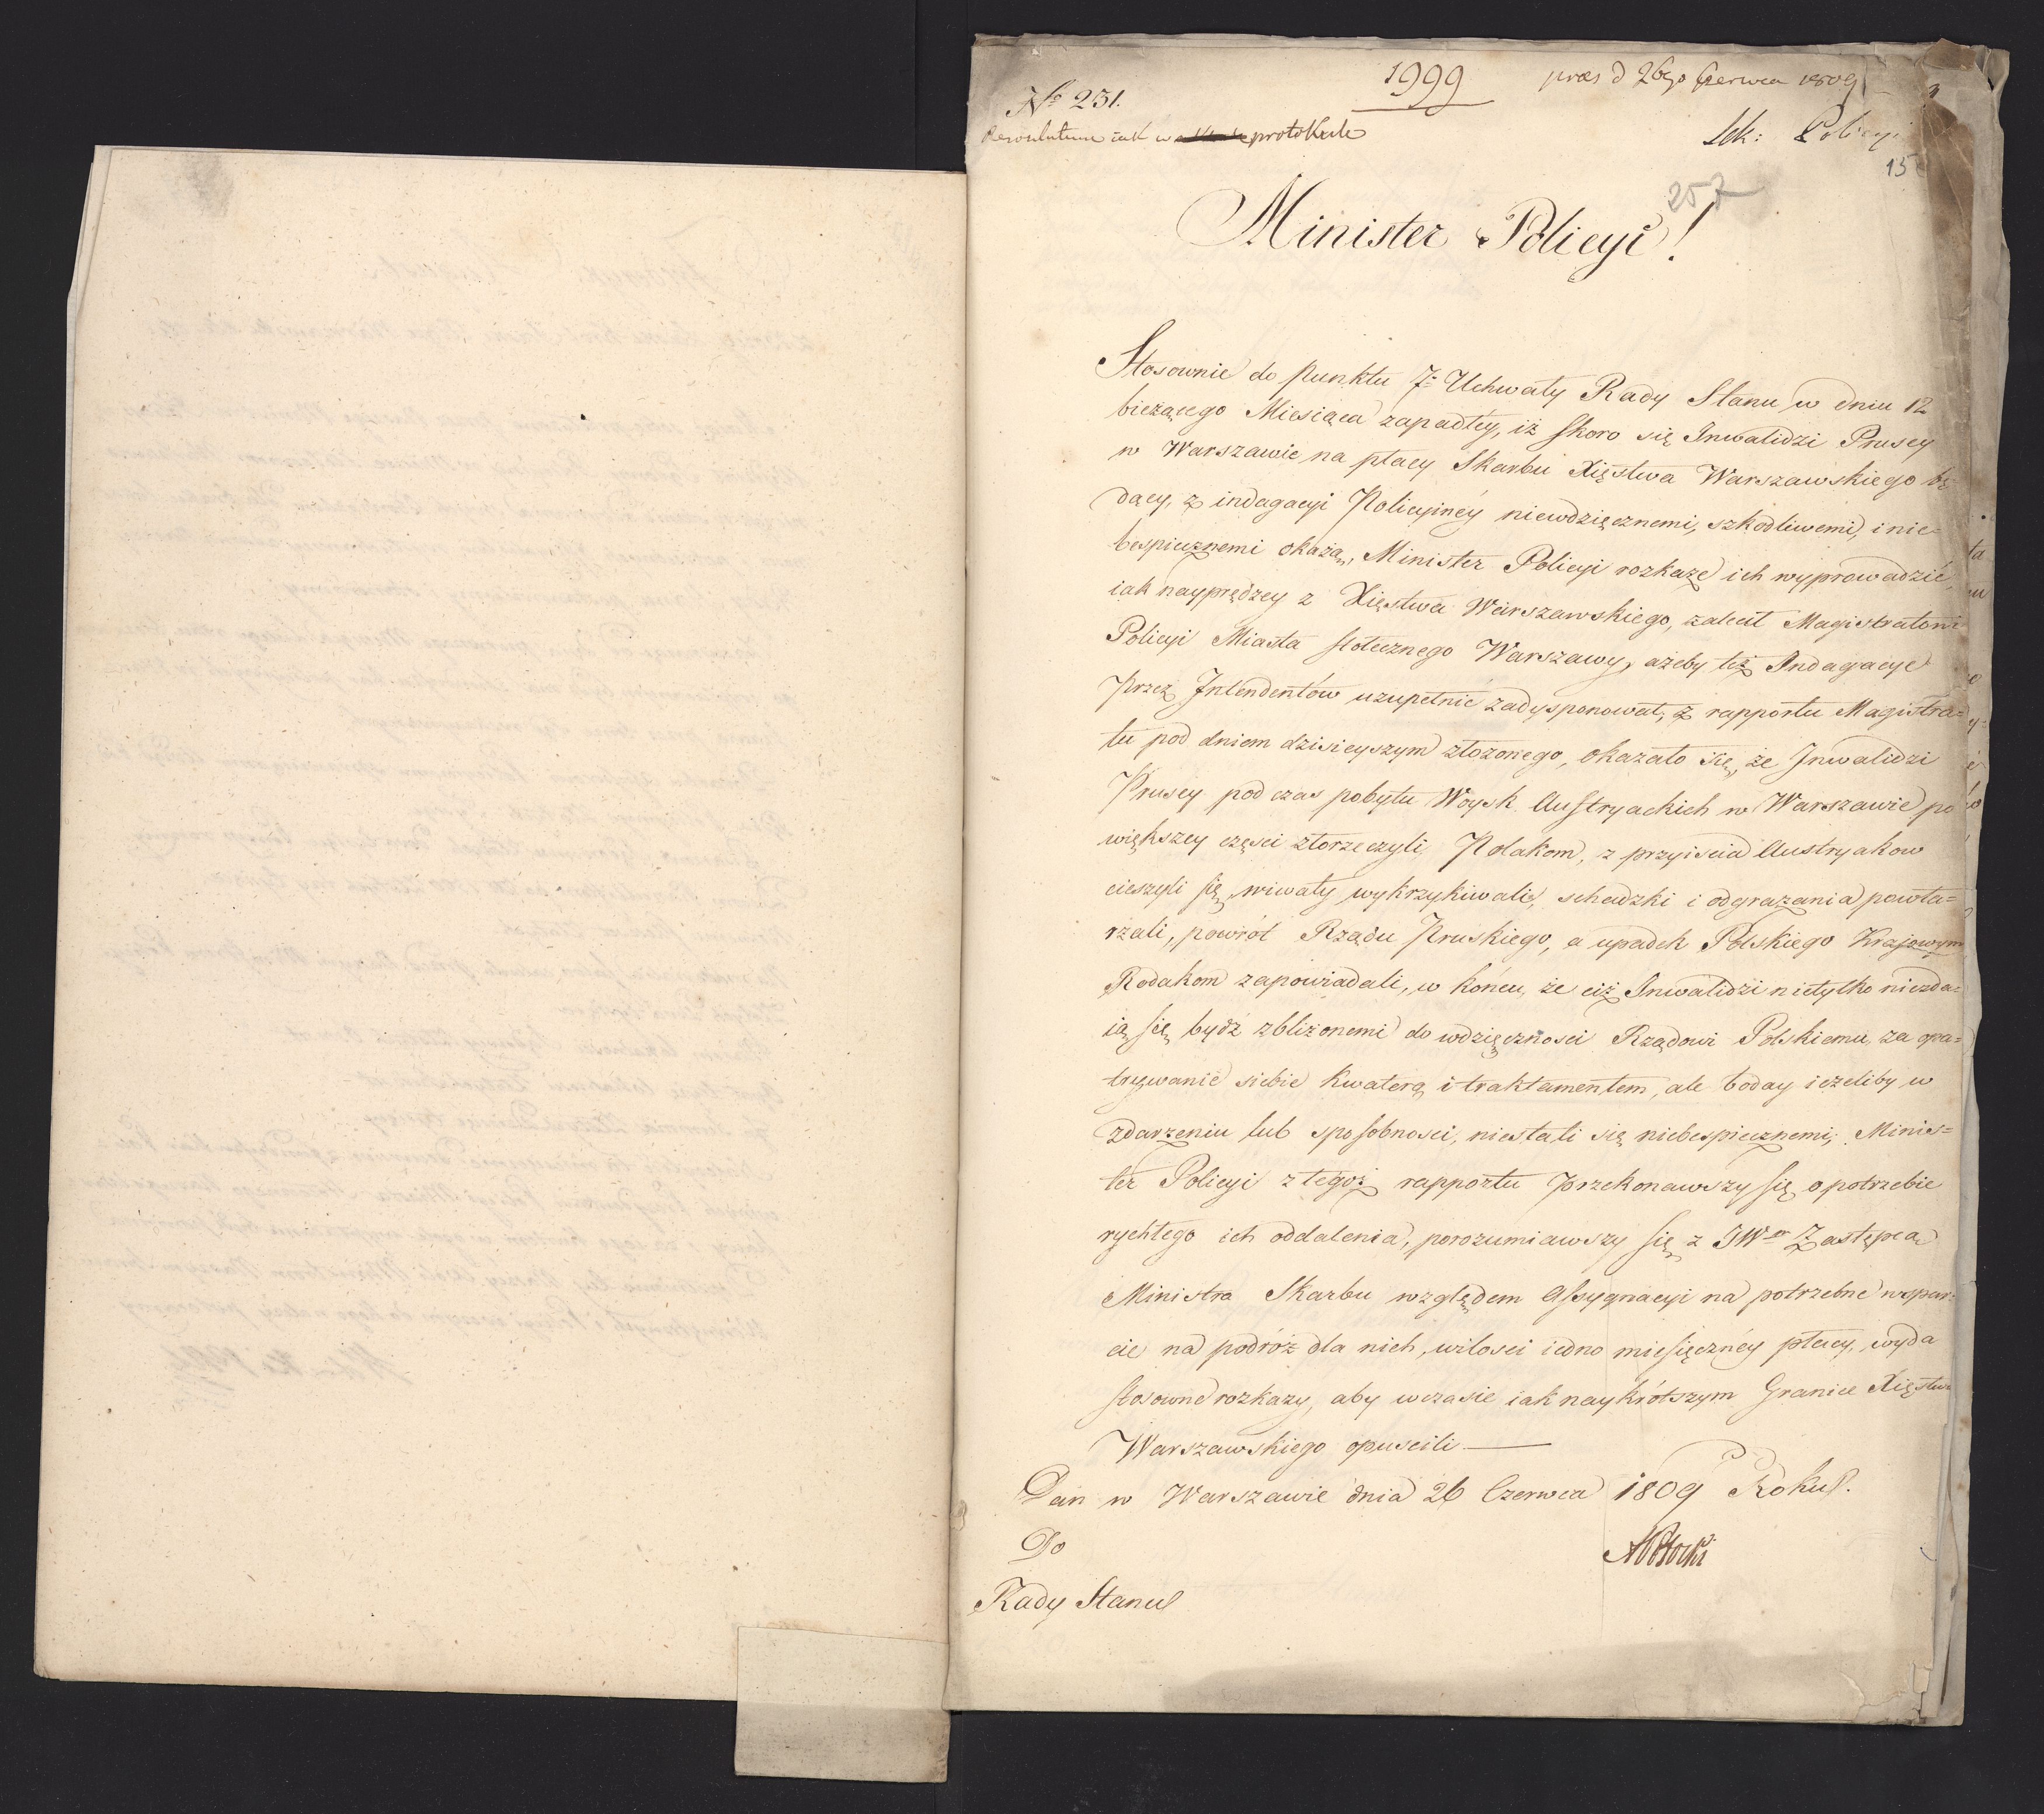 1999
praes d 26go Czerwca 1809
No 231.
Resolutum iak w protokule
Sek: Policyi
15
257
Minister Policyi!
Stosownie do Punktu 7o Uchwały Rady Stanu w dniu 12
bieżącego Miesiąca zapadłéy, iż skoro się Inwalidzi Pruscy
w Warszawie na płacy Skarbu Xięstwa Warszawskiego bę
dący, z indagacyi Policyinéy niewdzięcznemi, szkodliwemi, i nie-
bespiecznemi okażą, Minister Policyi rozkaże ich wyprowadzić,
iak nayprędzey z Xięstwa Warszawskiego, zalecił Magistratowi
Policyi Miasta stołecznego Warszawy, ażeby też Indagacye
Przez Intendentów uzupełnić zadysponował; z rapportu Magistra=
tu pod dniem dzisieyszym złożonego, okazało się, że Inwalidzi
Pruscy podczas pobytu Woysk Austryackich w Warszawie po
większey części złorzeczyli Polakom, z przyiścia Austryakow
cieszyli się, wiwaty wykrzykiwali, schadzki i odgrażania powta=
rzali, powrót Rządu Pruskiego, a upadek Polskiego Krajowym
Rodakom zapowiadali, w końcu, że ciż Inwalidzi nietylko niezda=
ią się bydź zbliżonemi do wdzięczności Rządowi Polskiemu, za opa=
trywanie siebie kwaterą i traktamentem, ale boday ieżeliby w
zdarzeniu lub sposobnosci, niestali się niebespiecznemi; Minis=
ter Policyi z tegoż rapportu przekonawszy się o potrzebie
rychłego ich oddalenia, porozumiawszy się z JWm Zastępcą
Ministra Skarbu względem Assygnacyi na potrzebne wspar=
cie na podróż dla nich, wilosci iedno miesięcznéy płacy, wyda
stosowne rozkazy, aby wczasie iak naykrótszym Granice Xięstwa
Warszawskiego opuscili.
Dan w Warszawie dnia 26 Czerwca 1809 Roku.
Do
APotocki
Rady Stanu